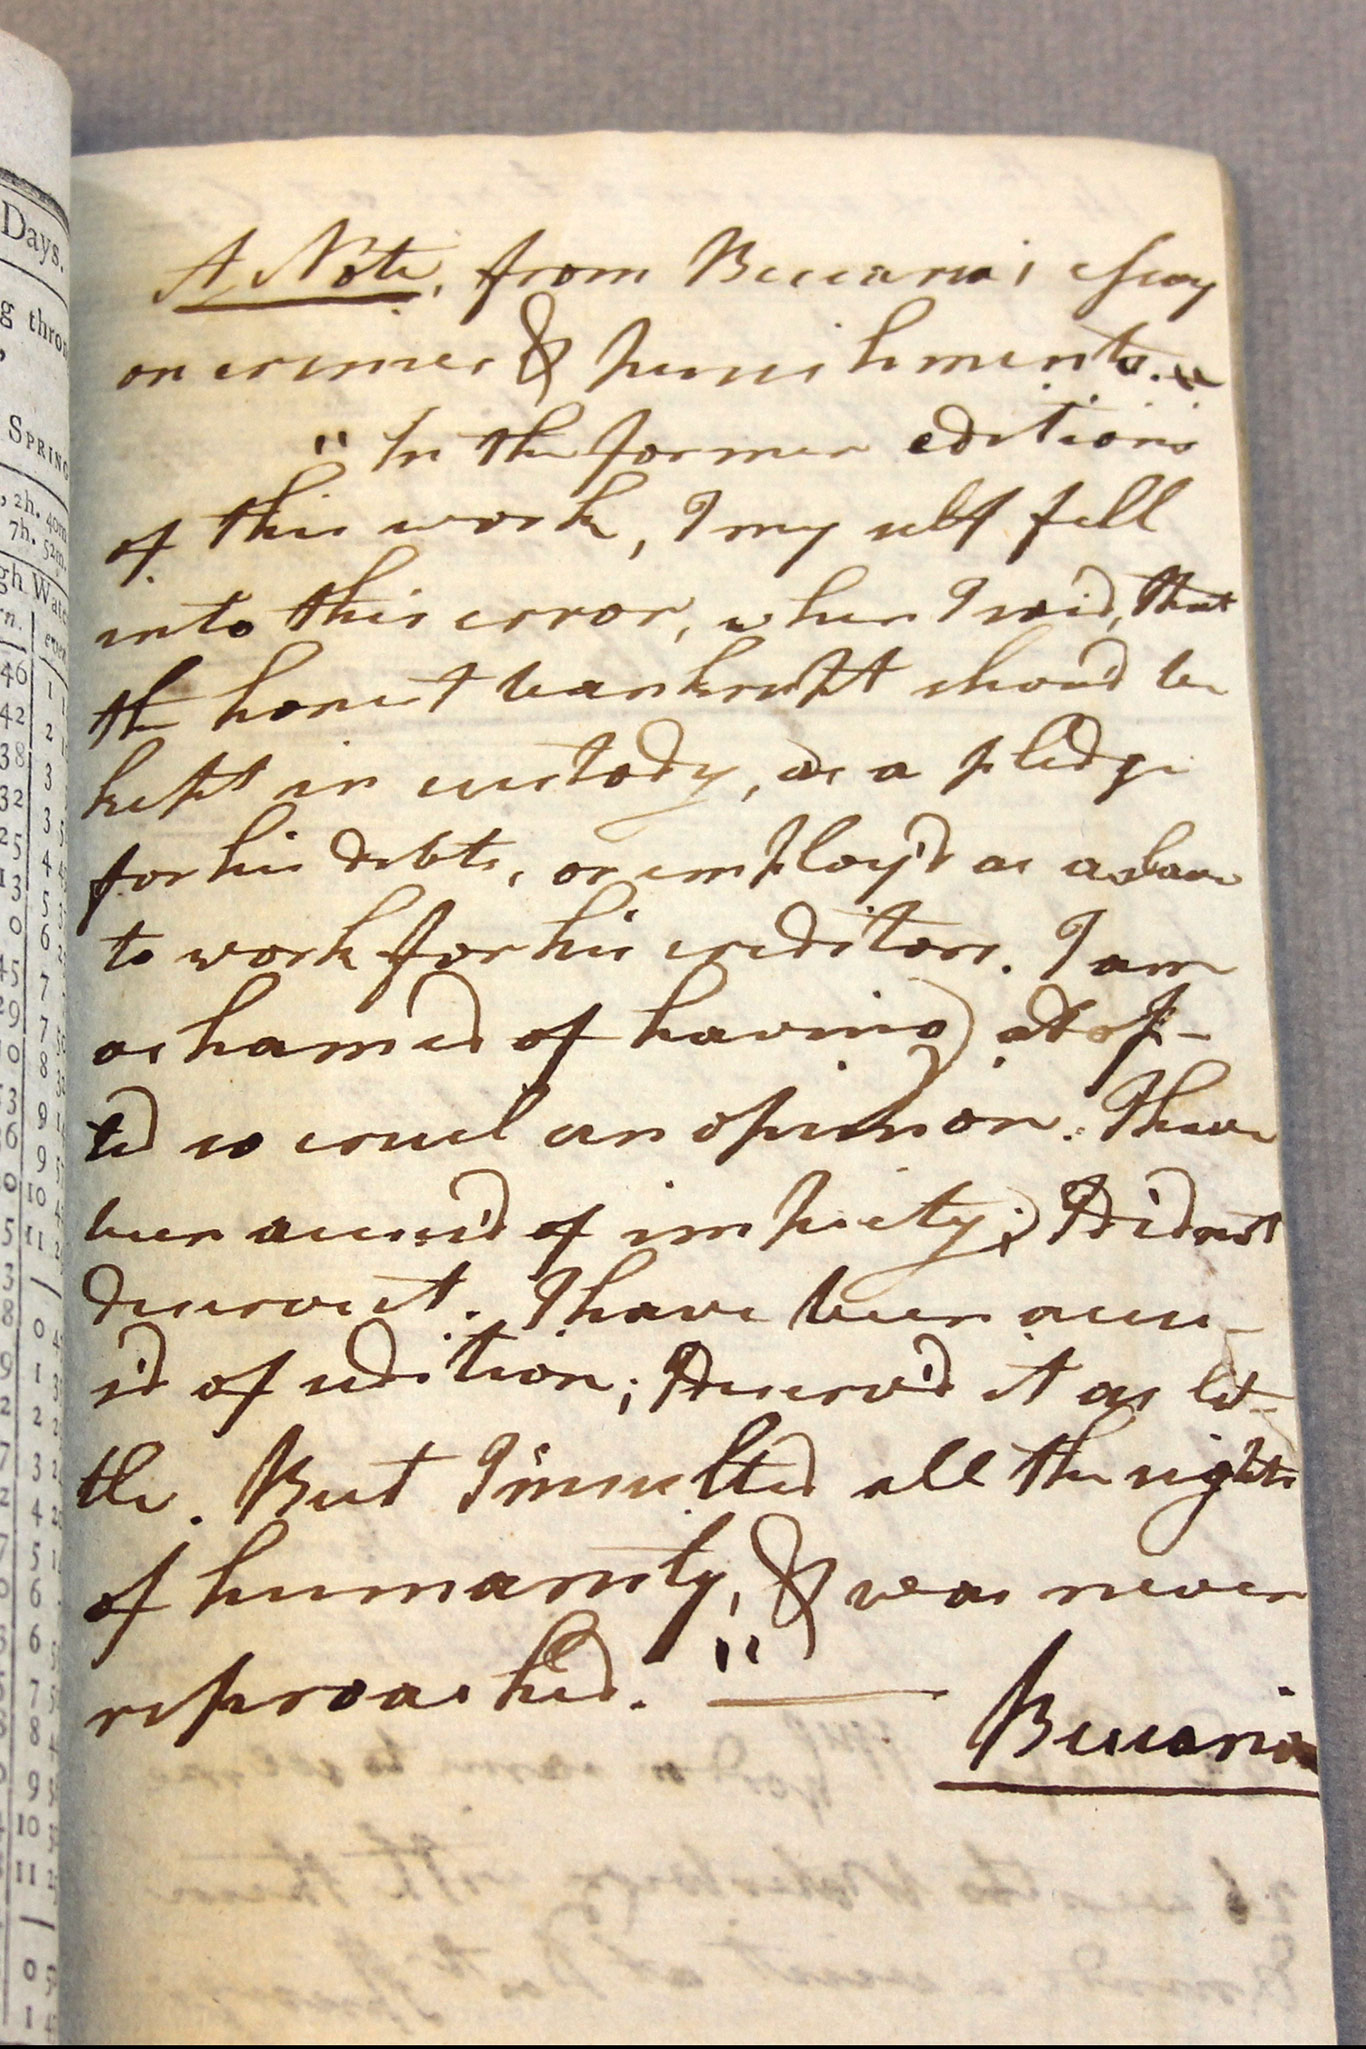 A Note, from Beccaria's essay
on crimes & punishments.
"In the former editions
of this work, I my self fell
into this error, when I said, that
the honest bankrupt shou'd be
kept in custody, as a pledge
for his debts, or employ'd as a slave
to work for his creditors. I am
ashamed of having adop-
ted so cruel an opinion. I have
been accus'd of impiety; I did not
deserve it. I have been accu-
s'd of sedition; I deserv'd it as lit-
tle. But I insulted all the rights
of humanity, & was never
reproached."
Beccaria
Days.
g thro
SPRING
2h. 40m
7h. 52m.
gh Wate
rn.
even
46 1
42 2
38 3
32 3
25 4
13 5
0 6
45 7
7
8
9
9
10
11
0
1
2
3
4
5
6
6
7
8
9
10
11
0
1